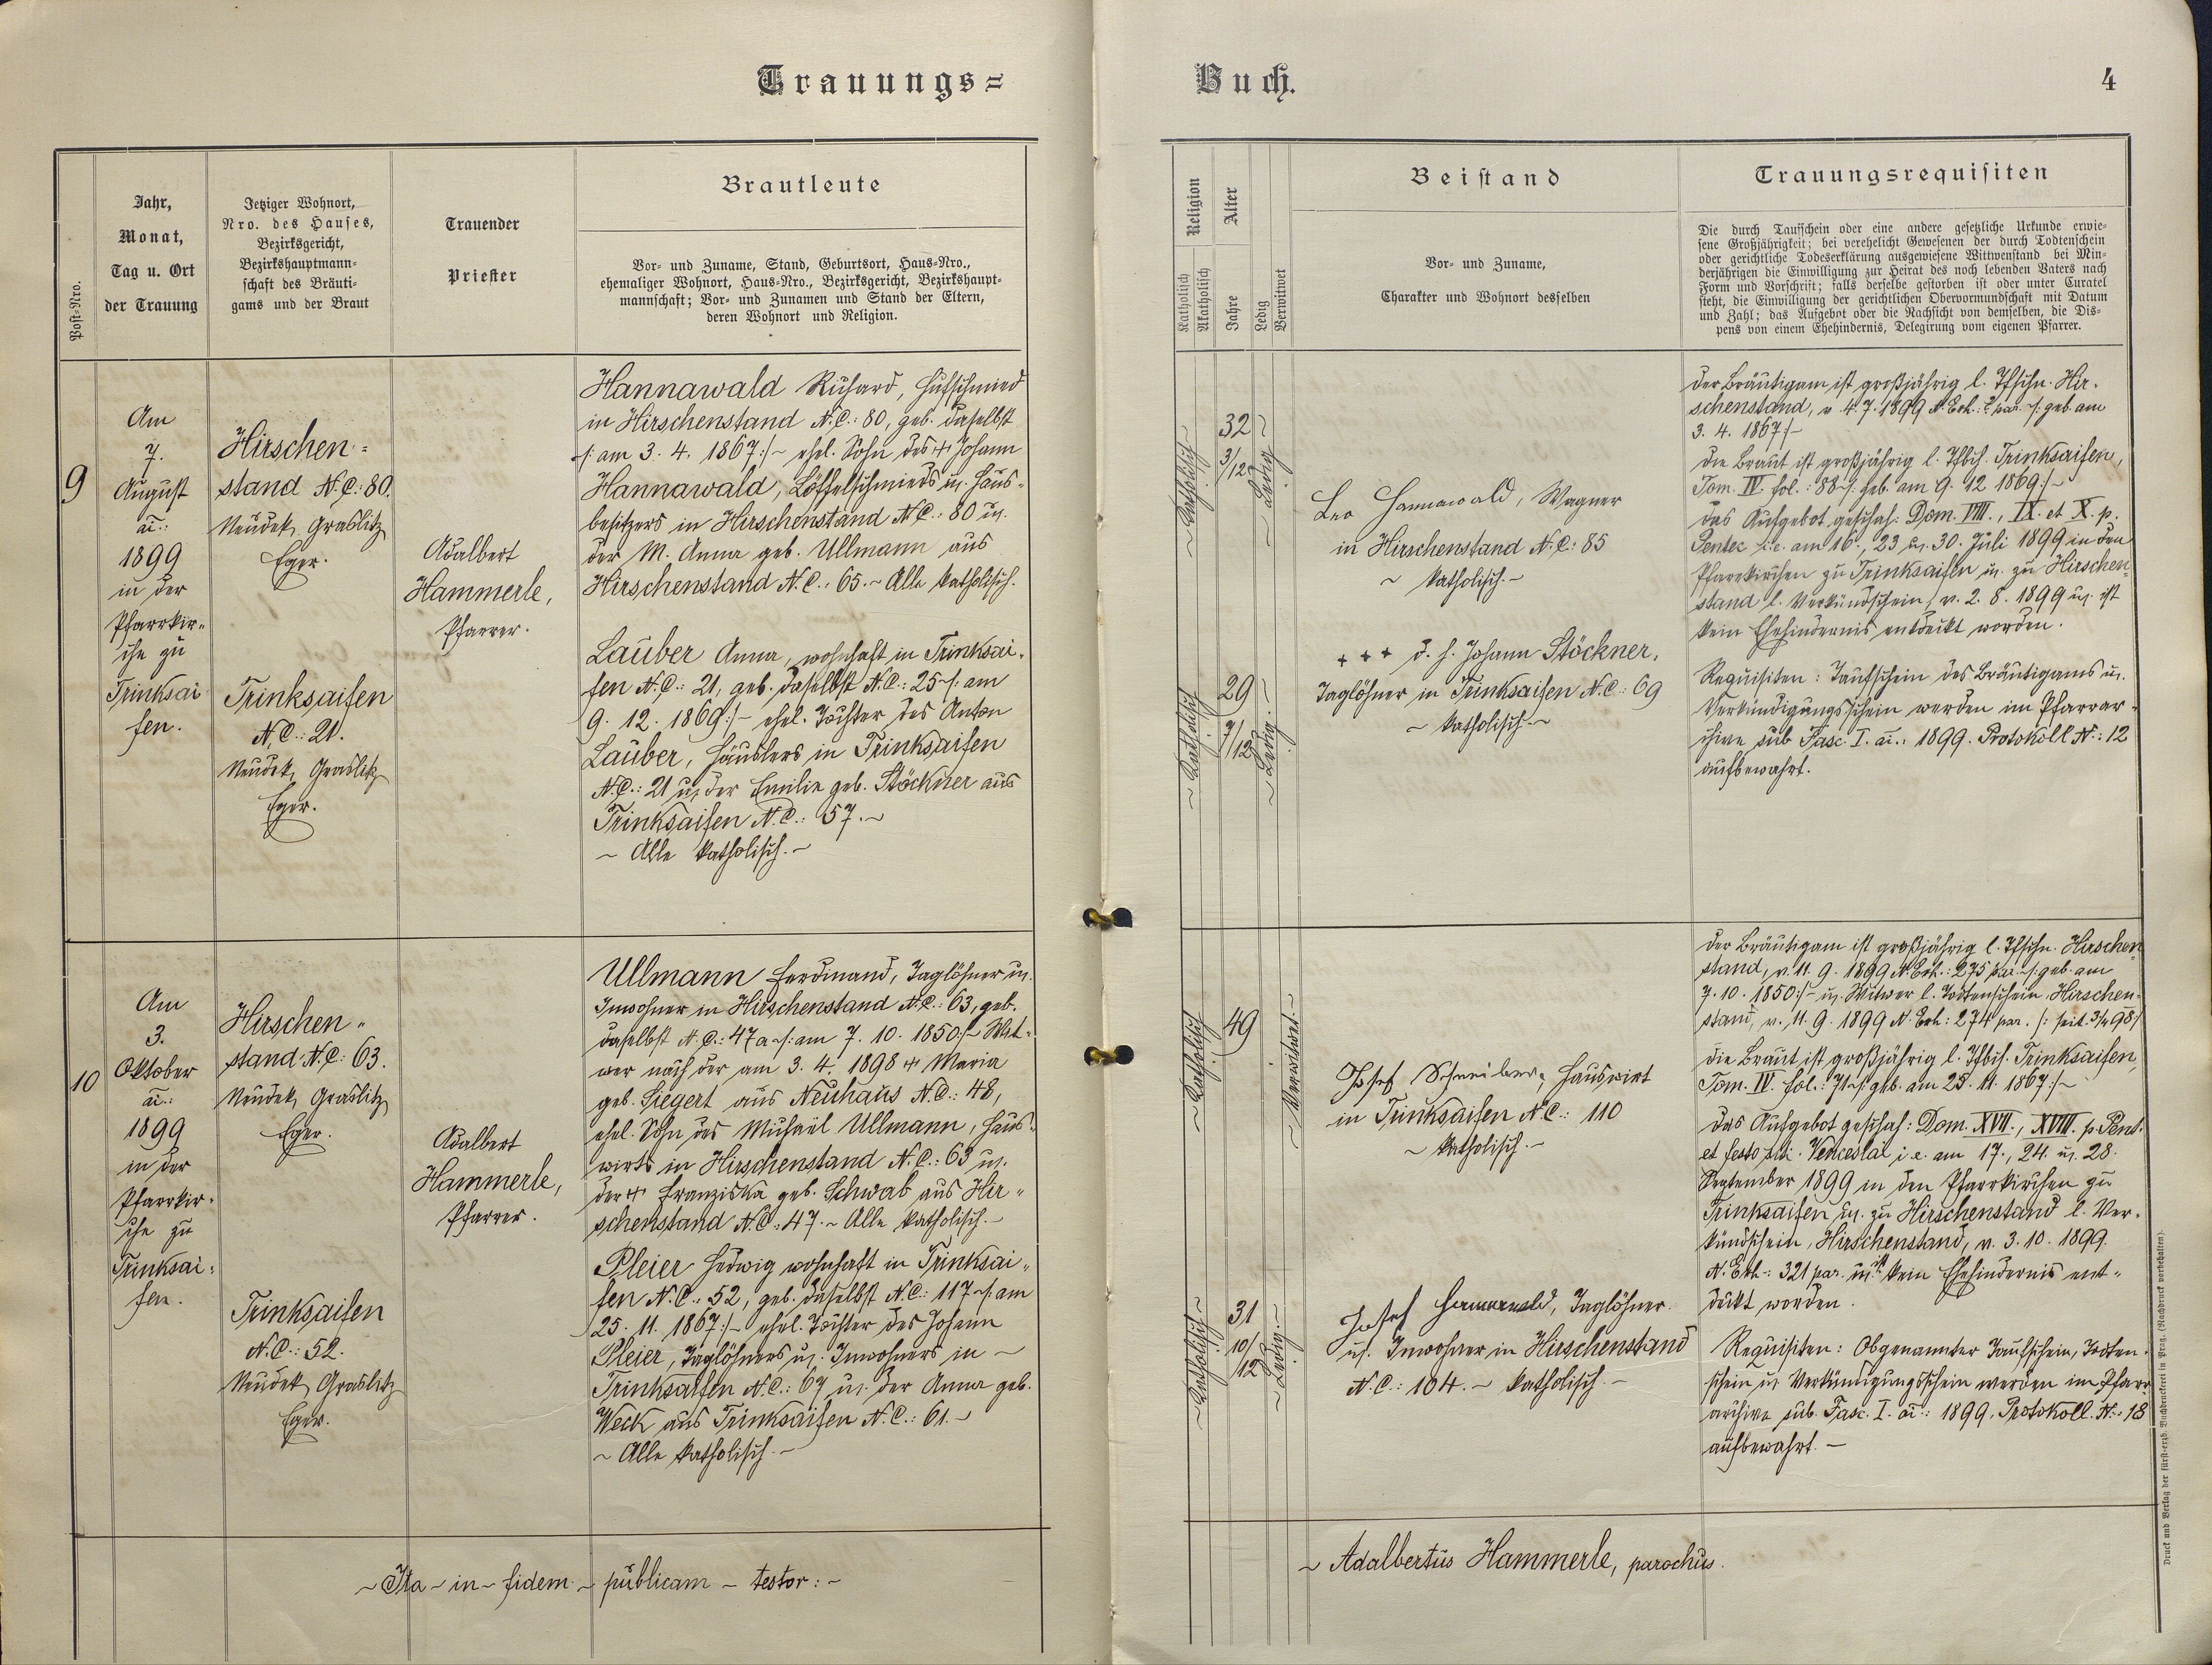 Trauungs=
Buch.
4
Post-Nro.
Jahr,
Monat,
Tag u. Ort
der Trauung
Jetziger Wohnort,
Nro. des Hauses,
Bezirksgericht,
Bezirkshauptmann-
schaft des Bräuti-
gams und der Braut
Trauender
Priester
Brautleute
Vor- und Zuname, Stand, Geburtsort, Haus-Nro.,
ehemaliger Wohnort, Haus-Nro., Bezirksgericht, Bezirkshaupt-
mannschaft; Vor- und Zunamen und Stand der Eltern,
deren Wohnort und Religion.
Religion
Katholisch
Akatholisch
Alter
Jahre
Ledig
Verwitwet
Beistand
Vor- und Zuname,
Charakter und Wohnort desselben
Trauungsrequisiten
Die durch Taufschein oder eine andere gesetzliche Urkunde erwie-
sene Großjährigkeit; bei verehelicht Gewesenen der durch Todtenschein
oder gerichtliche Todeserklärung ausgewiesene Wittwenstand bei Min-
derjährigen die Einwilligung zur Heirat des noch lebenden Vaters nach
Form und Vorschrift; falls derselbe gestorben ist oder unter Curatel
steht, die Einwilligung der gerichtlichen Obervormundschaft mit Datum
und Zahl; das Aufgebot oder die Nachsicht von demselben, die Dis-
pens von einem Ehehindernis, Delegirung vom eigenen Pfarrer.
9
Am
7.
August
ai.:
1899
in der
Pfarrkir-
che zu
Trinksai
fen.
Hirschen=
stand N.C.: 80.
Neudek, Graslitz
Eger.
Trinksaifen
N.C.: 21.
Neudek, Graslitz
Eger.
Adalbert
Hammerle,
Pfarrer.
Hannawald Richard, Hufschmied
in Hirschenstand N.C.: 80, geb. daselbst
/: am 3. 4. 1867 :/- ehel. Sohn des + Johann
Hannawald, Löffelschmieds u. Haus-
besitzers in Hirschenstand N.C.: 80 u.
der M. Anna geb. Ullmann aus
Hirschenstand N.C.: 65. ~ Alle katholisch.
Lauber Anna, wohnhaft in Trinksai-
fen N.C.: 21, geb. daselbst N.C.: 25 ~/: am
9. 12. 1869 :/- ehel. Tochter des Anton
Lauber, Häuslers in Trinksaifen
N.C.: 21 u. der Emilie geb. Stöckner aus
Trinksaifen N.C.: 57. ~
~ Alle katholisch. ~
~ Katholisch ~
32
3/12
~ Ledig ~
~ Katholisch
29
7/12
~ Ledig. ~
Leo Hannawald, Wagner
in Hirschenstand N.C.: 85
~ katholisch. ~
+ + + d. h. Johann Stöckner,
Taglöhner in Trinksaifen N.C.: 69
~ katholisch. ~
Der Bräutigam ist großjährig l. Tfschn. Hir-
schenstand, v. 4. 7. 1899 /: geb. am
3. 4. 1867 :/-
Die Braut ist großjährig l. Tfbch. Trinksaifen,
Tom. IV. fol.: 88 ~/: geb. am 9. 12 1869 :/~
Das Aufgebot geschah: Dom. VIII., IX. et X. p.
Pentec i.e. am 16., 23 u. 30. Juli 1899 in den
Pfarrkirchen zu Trinksaifen u. zu Hirschen-
stand l. Verkündschein v. 2. 8. 1899 u. ist
kein Ehehindernis entdeckt worden.
Requisiten: Taufschein des Bräutigams u.
Verkündigungsschein werden im Pfarrar-
chive sub Fasc. I. ai.: 1899. Protokoll N.: 12
aufbewahrt.
10
Am
3.
Oktober
ai.:
1899
in der
Pfarrkir-
che zu
Trinksai-
fen.
Hirschen-
stand N.C.: 63.
Neudek, Graslitz
Eger.
Trinksaifen
N.C.: 52.
Neudek, Graslitz
Eger.
Adalbert
Hammerle,
Pfarrer.
Ullmann Ferdinand, Taglöhner u.
Inwohner in Hirschenstand N.C.: 63, geb.
daselbst N.C.: 47a ~/: am 7. 10. 1850 :/~ Wit-
wer nach der am 3. 4. 1898 + Maria
geb. Siegert aus Neuhaus N.C.: 48,
ehel. Sohn des Michael Ullmann, Haus-
wirts in Hirschenstand N.C.: 63 u.
der + Franziska geb. Schwab aus Hir-
schenstand N.C.: 47. ~ Alle katholisch. ~
Pleier Hedwig wohnhaft in Trinksai-
fen N.C.: 52, geb. daselbst N.C.: 117 ~/: am
25. 11. 1867 :/~ ehel. Tochter des Johann
Pleier, Taglöhners u. Inwohners in ~
Trinksaifen N.C.: 67 u. der Anna geb.
Weck aus Trinksaifen N.C.: 61. ~
~ Alle katholisch. ~
~ Katholisch
49
~ Verwitwet. ~
~ Katholisch ~
31
10/12
~ Ledig. ~
Josef Schreiber, Hauswirt
in Trinksaifen N.C.: 110
~ katholisch. ~
Josef Hannawald, Taglöhner
u. Inwohner in Hirschenstand
N.C.: 104. ~ katholisch. ~
Der Bräutigam ist großjährig l. Tfschn. Hirschen-
stand, v. 11. 9. 1899 N. Exh.: 275 par. ~/: geb. am
7. 10. 1850 :/~ u. Witwer l. Todtenschein Hirschen-
stand, v. 11. 9. 1899 N. Exh.: 274 par. /: seit 3/4 98 :/
Die Braut ist großjährig l. Tfbch. Trinksaifen,
Tom. IV. fol.: 71 ~/: geb. am 25. 11. 1867 :/~
Das Aufgebot geschah: Dom. XVII., XVIII. p. Pent.
et festo sti. Venceslai i.e. am 17., 24. u. 28.
September 1899 in den Pfarrkirchen zu
Trinksaifen u. zu Hirschenstand l. Ver-
kündschein, Hirschenstand, v. 3. 10. 1899.
N. Exh.: 321 par. u. ist kein Ehehindernis ent-
deckt worden.
Requisiten: Obgenannter Taufschein, Todten-
schein u. Verkündigungsschein werden im Pfarr-
archive sub Fasc. I. ai.: 1899. Protokoll. N.: 18
aufbewahrt. ~
~ Ita ~ in ~ fidem ~ publicam ~ testor: ~
~ Adalbertus Hammerle, parochus.
Druck und Verlag der fürst-erzb. Buchdruckerei in Prag. (Nachdruck vorbehalten).